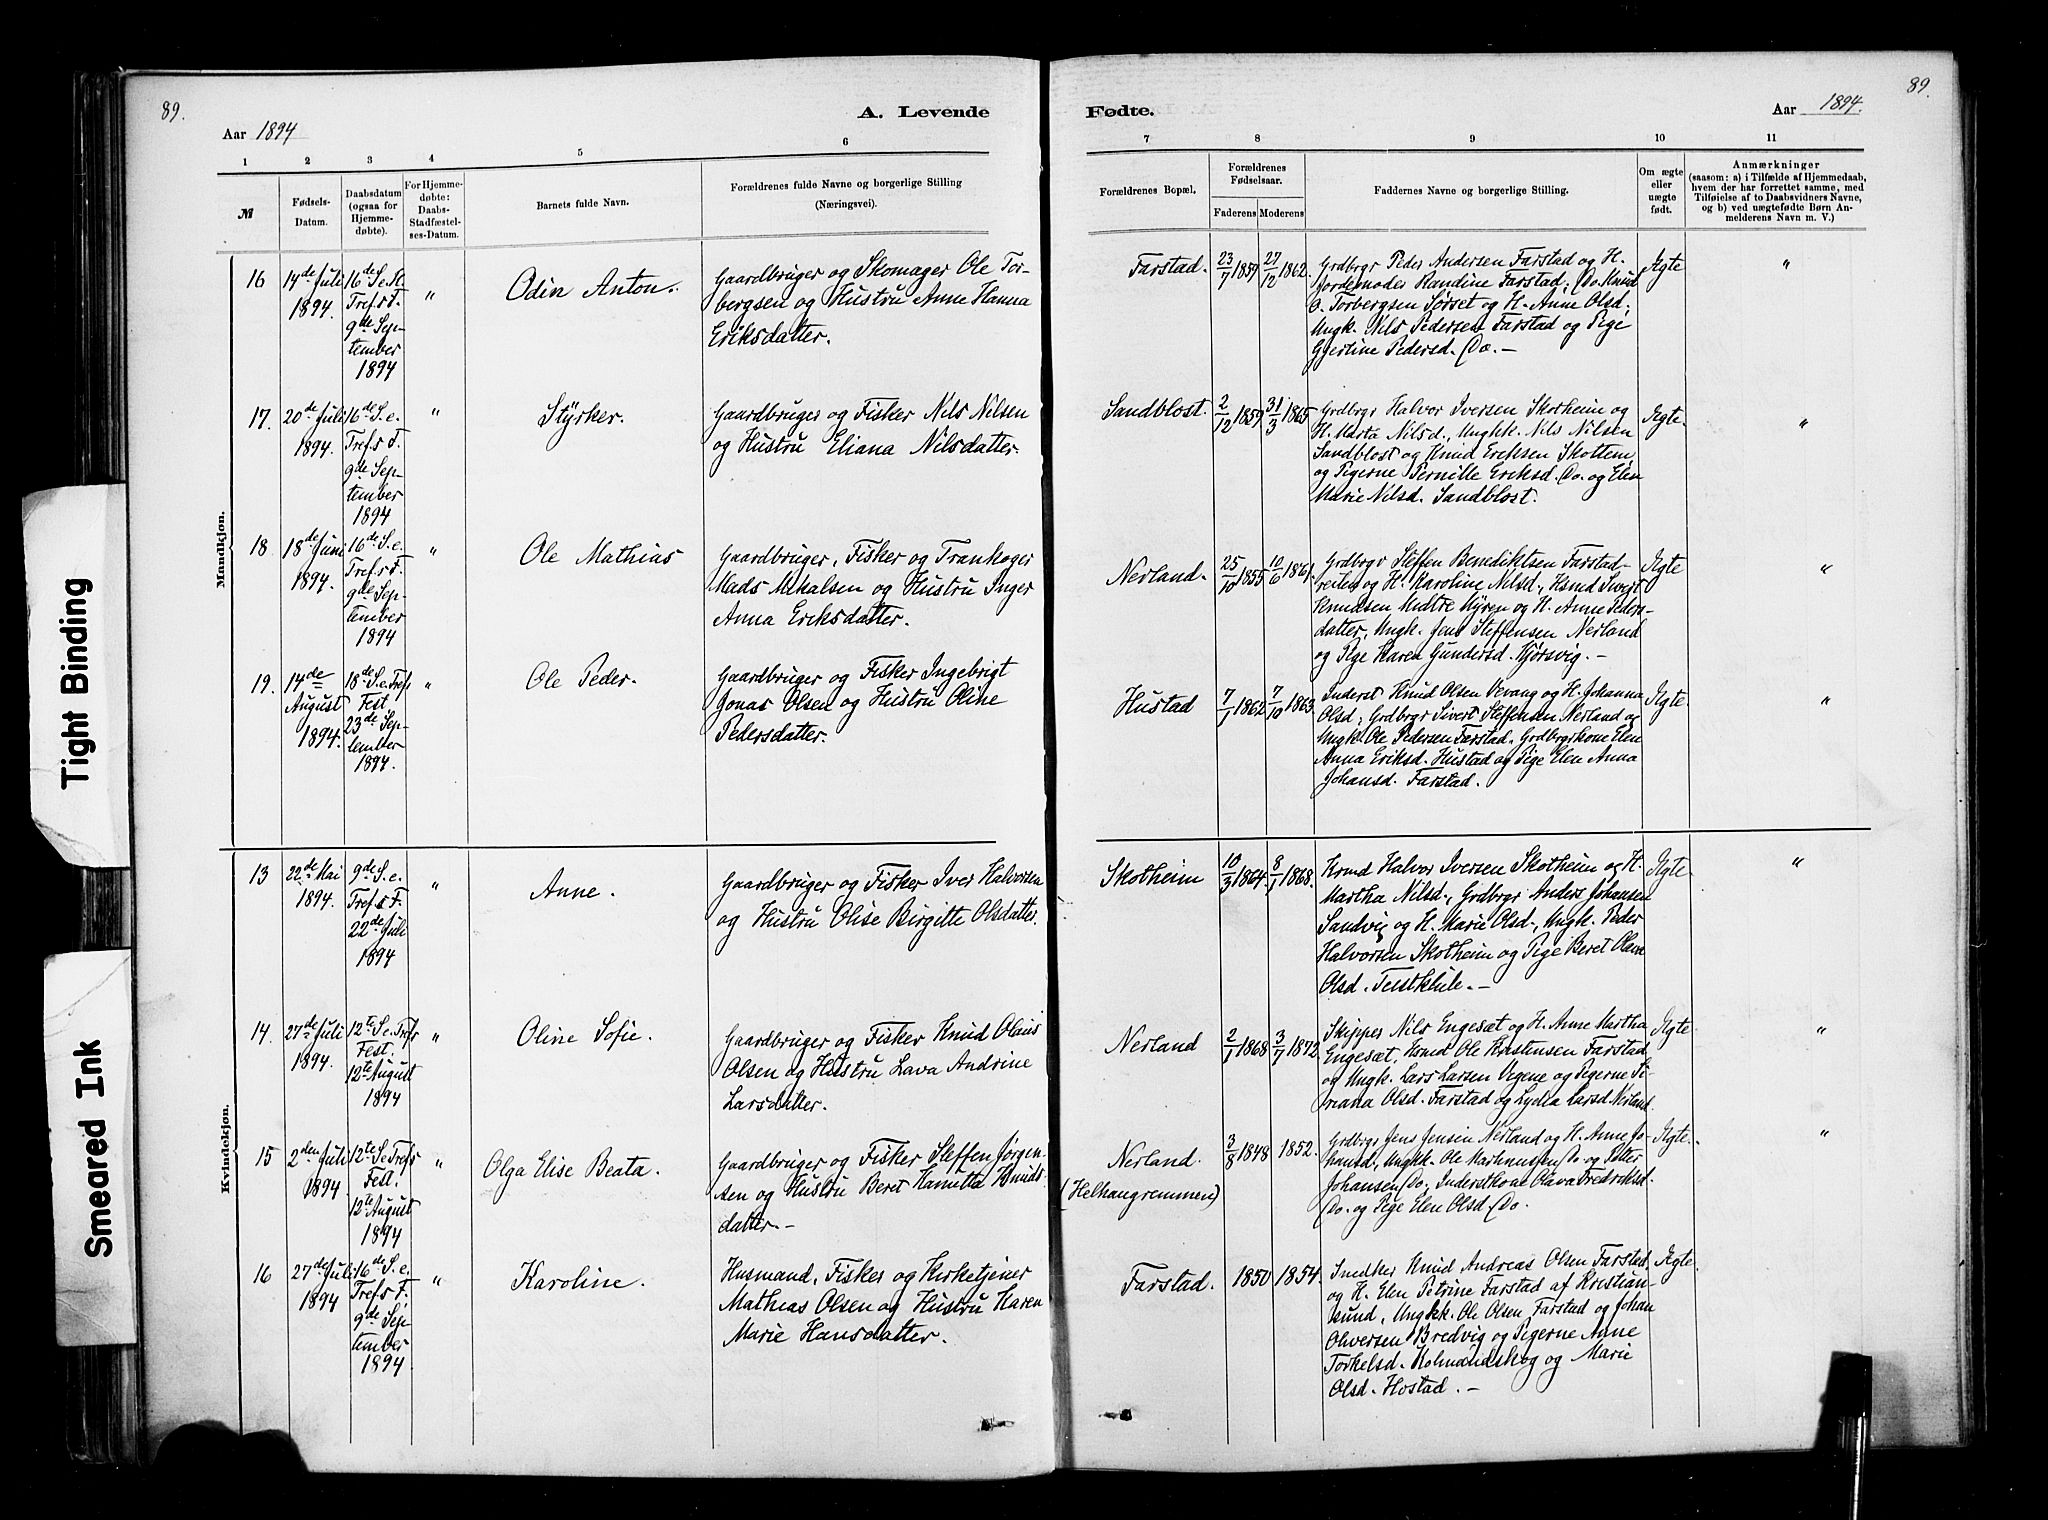 89.
A. Levende
Aar 1894
1 2 3 4 5 6
№
Fødsels-
Datum.
Daabsdatum
(ogsaa for
Hjemme-
døbte).
For Hjemme-
døbte:
Daabs-
Stadfæstel-
ses-Datum.
Barnets fulde Navn.
Forældrenes fulde Navne og borgerlige Stilling
(Næringsvei).
Mandkjøn.
16
14de Juli
1894.
16de S.e.
Tref.s F.
9de Sep-
tember
1894
"
Odin Anton.
Gaardbruger og Skomager Ole Tor-
bergsen og Hustru Anne Hanna
Eriksdatter.
17.
20de Juli
1894.
16de S.e.
Tref.s F.
9de Sep-
tember
1894
"
Styrker.
Gaardbruger og Fisker Nils Nilsen
og Hustru Eliana Nilsdatter.
18
18de Juni
1894.
16de S.e.
Tref.s F.
9de Sep-
tember
1894
"
Ole Mathias
Gaardbruger, Fisker og Trankoger
Mads Mikalsen og Hustru Inger
Anna Eriksdatter.
19.
14de
August
1894.
18de S.e. Tref.
Fest.
23de Sep-
tember
1894.
"
Ole Peder.
Gaardbruger og Fisker Ingebrigt
Jonas Olsen og Hustru Oline
Pedersdatter.
Kvindekjøn.
13
22de Mai
1894.
9de S.e.
Tref.s F.
22de Juli
1894
"
Anne.
Gaardbruger og Fisker Iver Halvorsen
og Hustru Olise Birgitte Olsdatter.
14.
27de Juli
1894.
12te S.e. Trefs
Fest.
12te August
1894
"
Oline Sofie.
Gaardbruger og Fisker Knud Olaus
Olsen og Hustru Lava Andrine
Larsdatter.
15
2den Juli
1894
12te S.e Trefs
Fest.
12te August
1894
"
Olga Elise Beata.
Gaardbruger og Fisker Steffen Jørgen-
sen og Hustru Beret Hanetta Knuds-
datter.-
16
27de Juli
1894
16de S.e.
Tref.s F.
9de Sep-
tember
1894.
"
Karoline.
Husmand, Fisker og Kirketjener
Mathias Olsen og Hustru Karen
Marie Hansdatter.
89.
Fødte.
Aar 1894.
7 8 9 10 11
Forældrenes Bopæl.
Forældrenes
Fødselsaar.
Faderens Moderens
Faddernes Navne og borgerlige Stilling.
Om ægte
eller
uægte
født.
Anmærkninger
(saasom: a) i Tilfælde af Hjemmedaab,
hvem der har forrettet samme, med
Tilføielse af to Daabsvidners Navne,
og b) ved uægtefødte Børn An-
melderens Navn m. V.)
Farstad.
23/7 1857
27/12 1862.
Grdbrgr Peder Andersen Farstad og H.
Jordemoder Randine Farstad, Do. Knud
O. Torbergsen Sørset og H. Anne Olsd,
Ungk. Nils Pedersen Farstad og Pige
Gjertine Pedersd. Do.-
Ægte
"
Sandblost.
2/12 1859
31/3 1865
Grdbrgr Halvor Iversen Skotheim og
H. Marta Nilsd., Ungkk. Nils Nilsen
Sandblost og Knud Eriksen Skottem
og Pigerne Pernille Eriksd. Do. og Elen
Marie Nilsd. Sandblost.
Ægte.
"
Nerland.
25/10 1855
10/6 1861.
Grdbrgr Steffen Benediktsen Farstad-
reiten og H. Karoline Nilsd., Hsmd Sivert
Knudsen Midtre Myren og H. Anne Peders-
datter, Ungk. Jens Steffensen Nerland
og Pige Karen Gundersd. Hjørsvig.-
Ægte
"
Hustad
7/1 1862
7/10 1863
Inderst Knud Olsen Vevang og H. Johanna
Olsd, Grdbrgr Sivert Steffensen Nerland og
Ungk. Ole Pedersen Farstad, Grdbrgrkone Elen
Anna Eriksd. Hustad og Pige Elen Anna
Johansd. Farstad.
Ægte.
"
Skotheim
10/3 1864.
8/1 1868.
Krmd Halvor Iversen Skotheim og H.
Martha Nilsd., Grdbrgr Anders Johansen
Sandvig og H. Marie Olsd., Ungk. Peder
Halvorsen Skotheim og Pige Beret Olava
Olsd. Teistklub.-
Ægte.
"
Nerland
2/1 1868
3/7 1872
Skipper Nils Engesæt og H. Anne Martha
Engesæt, Krmd Ole Kristensen Farstad
og Ungk. Lars Larsen Vegene og Pigerne
Olsd. Farstad og Lydia Larsd Nerland.
Ægte
"
Nerland.
(Helhaugremmen)
3/8 1848
1852.
Grdbrgr Jens Jensen Nerland og H. Anne Jo-
hansd., Ungkk. Ole Markmussen Do og Petter
Johansen Do, Inderstkone Olava Fredriksd.
Do. og Pige Elen Olsd. Do.
Ægte.
"
Farstad.
1850
1854.
Snedker Knud Andreas Olsen Farstad
og H. Elen Petrine Farstad af Kristian-
sund, Ungkk. Ole Olsen Farstad og Johan
Oliversen Bredvig og Pigerne Anne
Torkelsd. Kolmandskog og Marie
Olsd. Hostad.-
Ægte.
Tight Binding
Smeared Ink